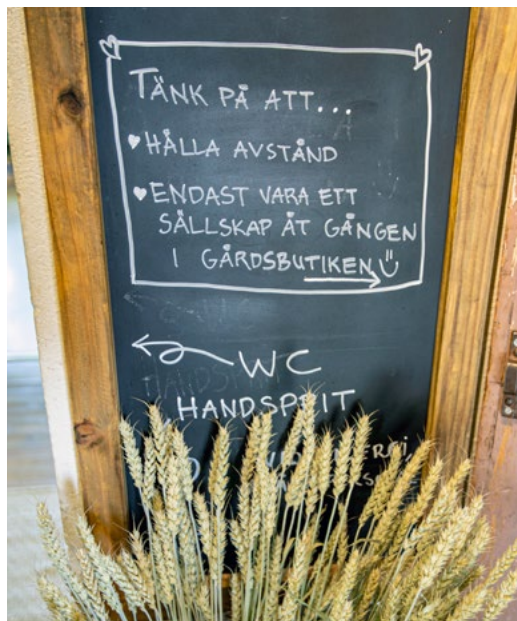 TÄNK PÅ ATT...
♥ HÅLLA AVSTÅND
♥ ENDAST VARA ETT
SÄLLSKAP ÅT GÅNGEN
I GÅRDSBUTIKEN
WC
HANDSPRIT